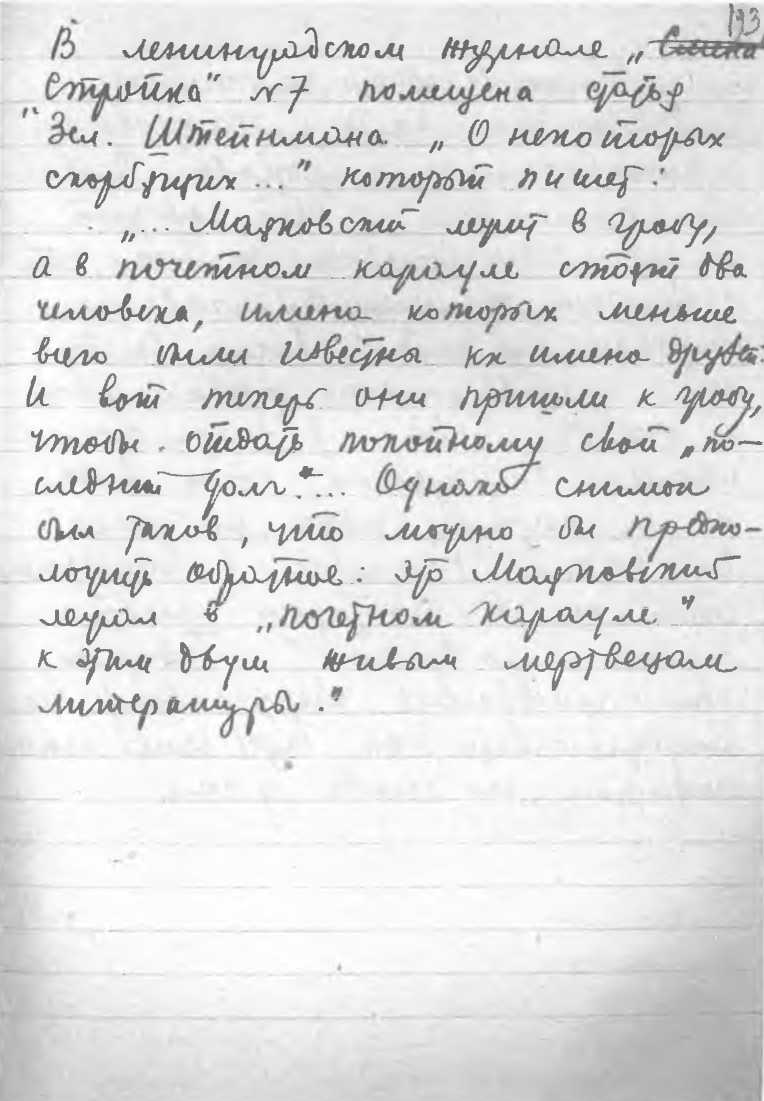 193
В ленинградском журнале „Смена
Стройка" №7 помещена статья
"Зел. Штейнмана „О некоторых
скорбящих..." который пишет:
„... Маяковский лежит в гробу,
а в почетном карауле стоят два
человека, имена которых меньше
всего были известны как имена друзей.
И вот теперь они пришли к гробу,
чтобы отдать покойному свой „по-
следний долг"... Однако снимок
был таков, что можно бы предпо-
ложить обратное: это Маяковский
лежал в „почетном карауле"
к этим двум живым мертвецам
литературы."